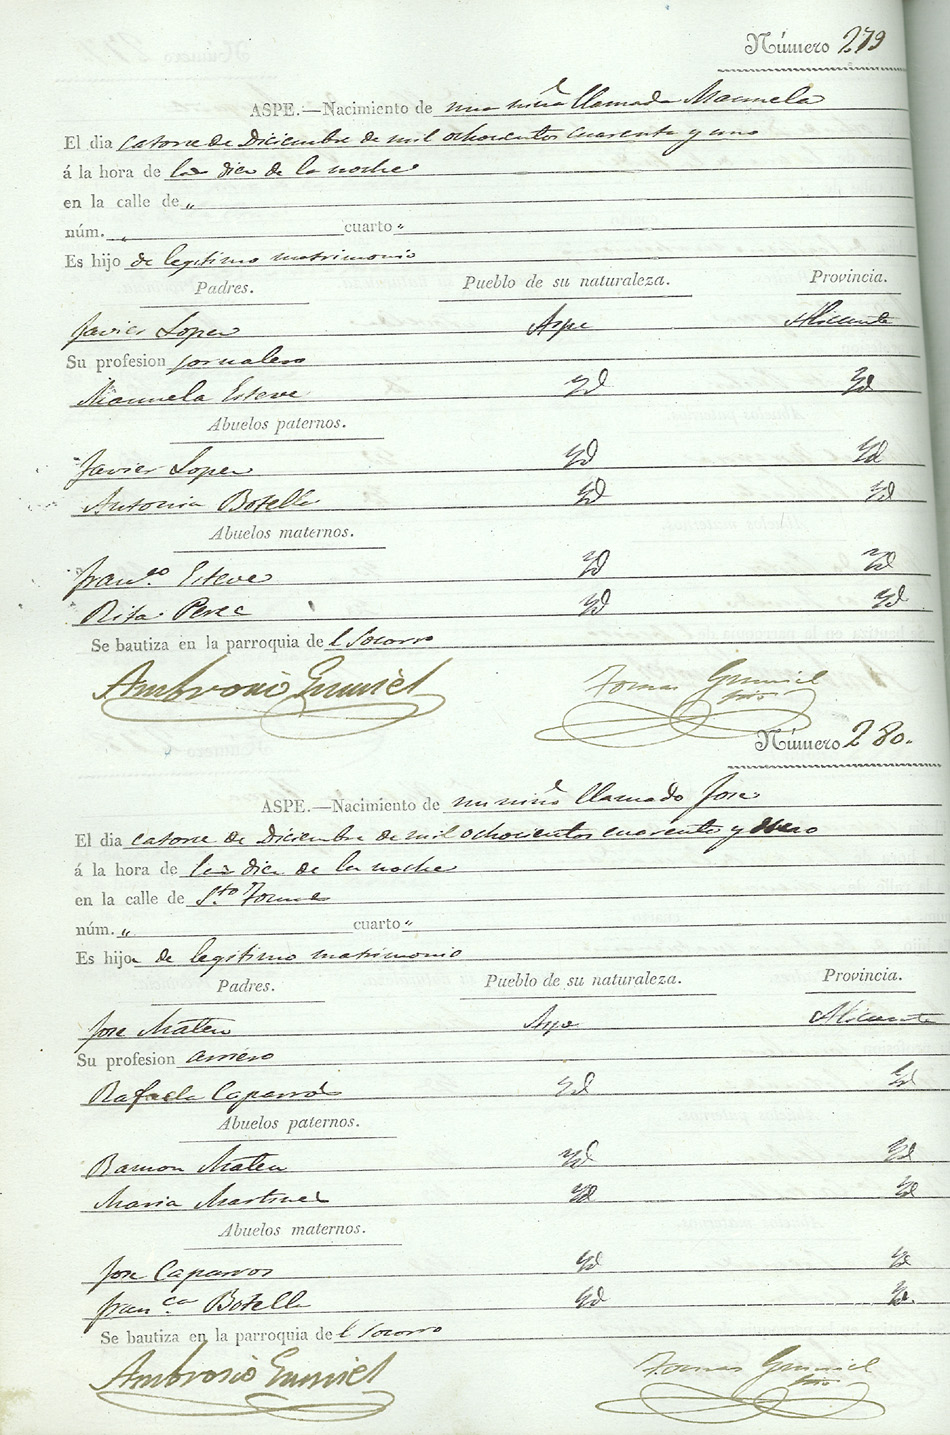 Número 279
ASPE.—Nacimiento de una niña llamada Manuela
El dia catorse de Diciembre de mil ochocientos cuarenta y uno
á la hora de las dies de la noche
en la calle de "
núm. " cuarto "
Es hijo de legitimo matrimonio
Padres. Pueblo de su naturaleza. Provincia.
Javier Lopez Aspe Alicante
Su profesion jornalero
Manuela Esteve Yd Yd
Abuelos paternos.
Javier Lopez Yd Yd
Antonia Botella Yd Yd
Abuelos maternos.
Franco. Esteve Yd Yd
Rita Perez Yd Yd
Se bautiza en la parroquia del Socorro
Ambrosio Gumiel Tomas Gumiel
Srio
Número 280.
ASPE.—Nacimiento de un niño llamado Jose
El dia catorse de Diciembre de mil ochocientos cuarenta y uno
á la hora de las dies de la noche
en la calle de Sto. Tomas
núm. " cuarto "
Es hijo de legitimo matrimonio
Padres. Pueblo de su naturaleza. Provincia.
Jose Mateu Aspe Alicante
Su profesion arriero
Rafaela Caparros Yd Yd
Abuelos paternos.
Ramon Mateu Yd Yd
Maria Martinez Yd Yd
Abuelos maternos.
Jose Caparros Yd Yd
Franca Botella Yd Yd.
Se bautiza en la parroquia del Socorro
Ambrosio Gumiel Tomas Gumiel
Srio